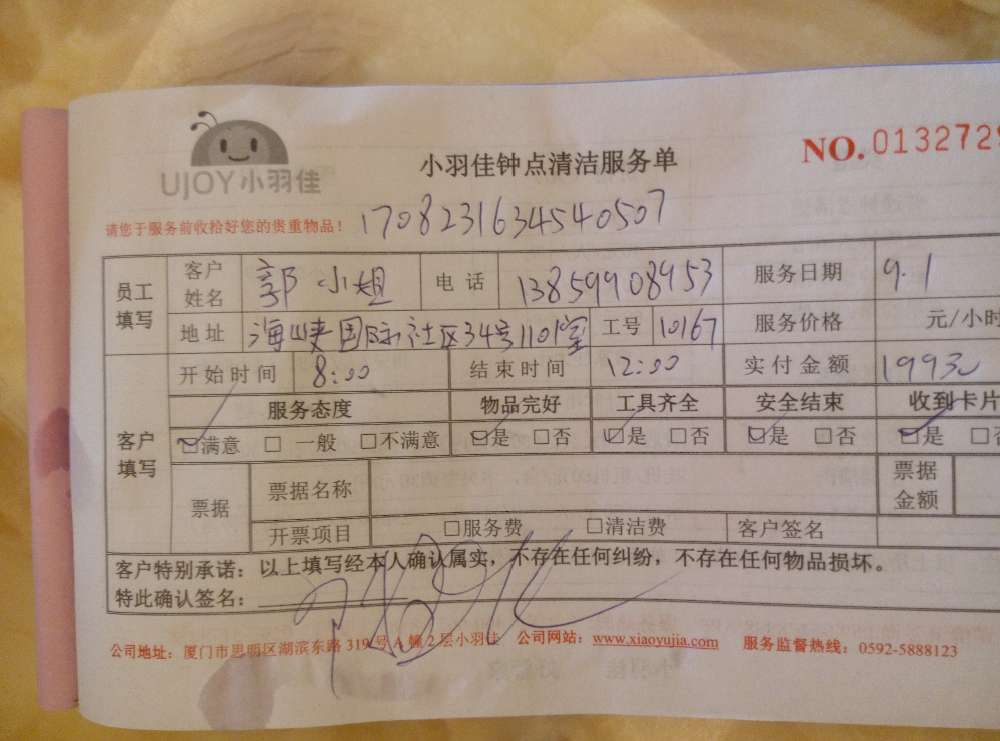 UJOY小羽佳
小羽佳钟点清洁服务单
NO.0132729
请您于服务前收拾好您的贵重物品！ 1708231634540507
员工填写 客户姓名 郭小姐 电话 13859908953 服务日期 9.1
地址 海峡国际社区34号1101室 工号 10167 服务价格 元/小时
客户填写 开始时间 8:00 结束时间 12:00 实付金额
服务态度 物品完好 工具齐全 安全结束 收到卡片
☑满意 □一般 □不满意 ☑是 □否 ☑是 □否 ☑是 □否 ☑是 □否
票据 票据名称 票据金额
开票项目 □服务费 □清洁费 客户签名
客户特别承诺：以上填写经本人确认属实，不存在任何纠纷，不存在任何物品损坏。
特此确认签名：
公司地址：厦门市思明区湖滨东路319号A幢2层小羽佳 公司网站：www.xiaoyujia.com 服务监督热线：0592-5888123